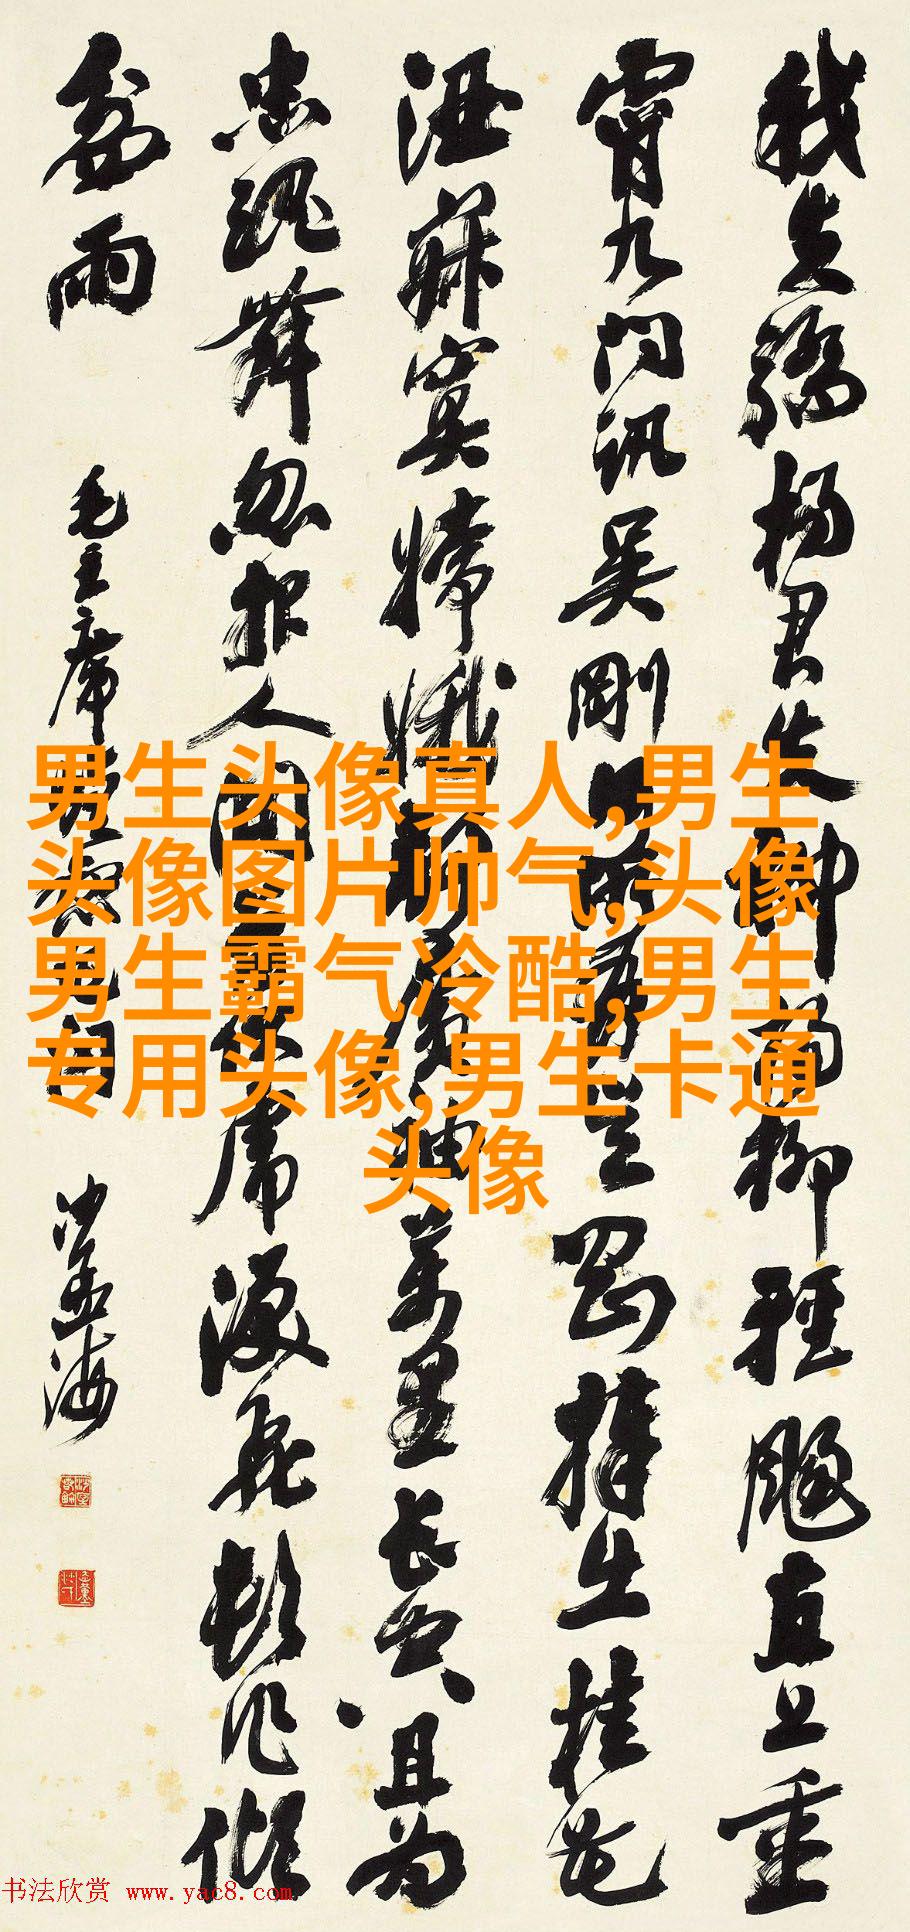 我失骄杨君失柳杨柳轻飏直上重
霄九问讯吴刚何所有吴刚捧出桂花
酒寂寞嫦娥舒广袖万里长空且为
忠魂舞忽报人间曾伏虎泪飞顿作倾
盆雨
毛主席蝶恋花词
沙孟海
男生头像真人,男生
头像图片帅气,头像
男生霸气冷酷,男生
专用头像,男生卡通
头像
书法欣赏 www.yac8.com